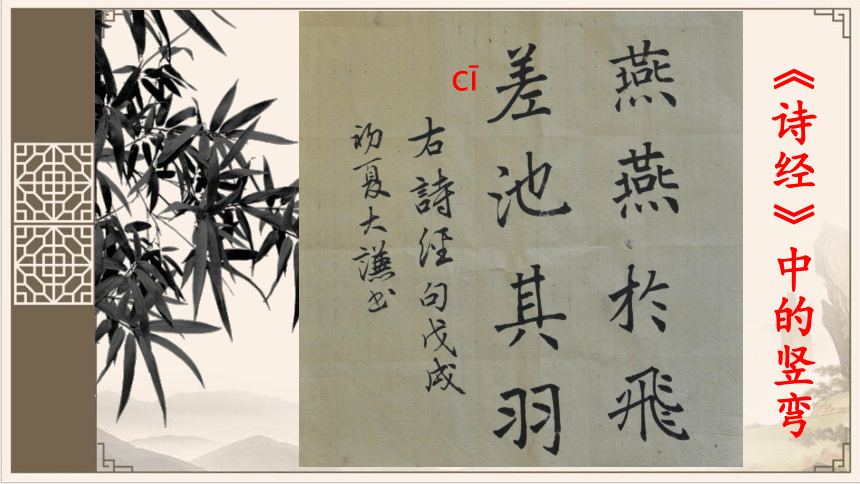 《诗经》中的竖弯
燕燕於飛
cī
差池其羽
右詩經句戊戌
初夏大謙书